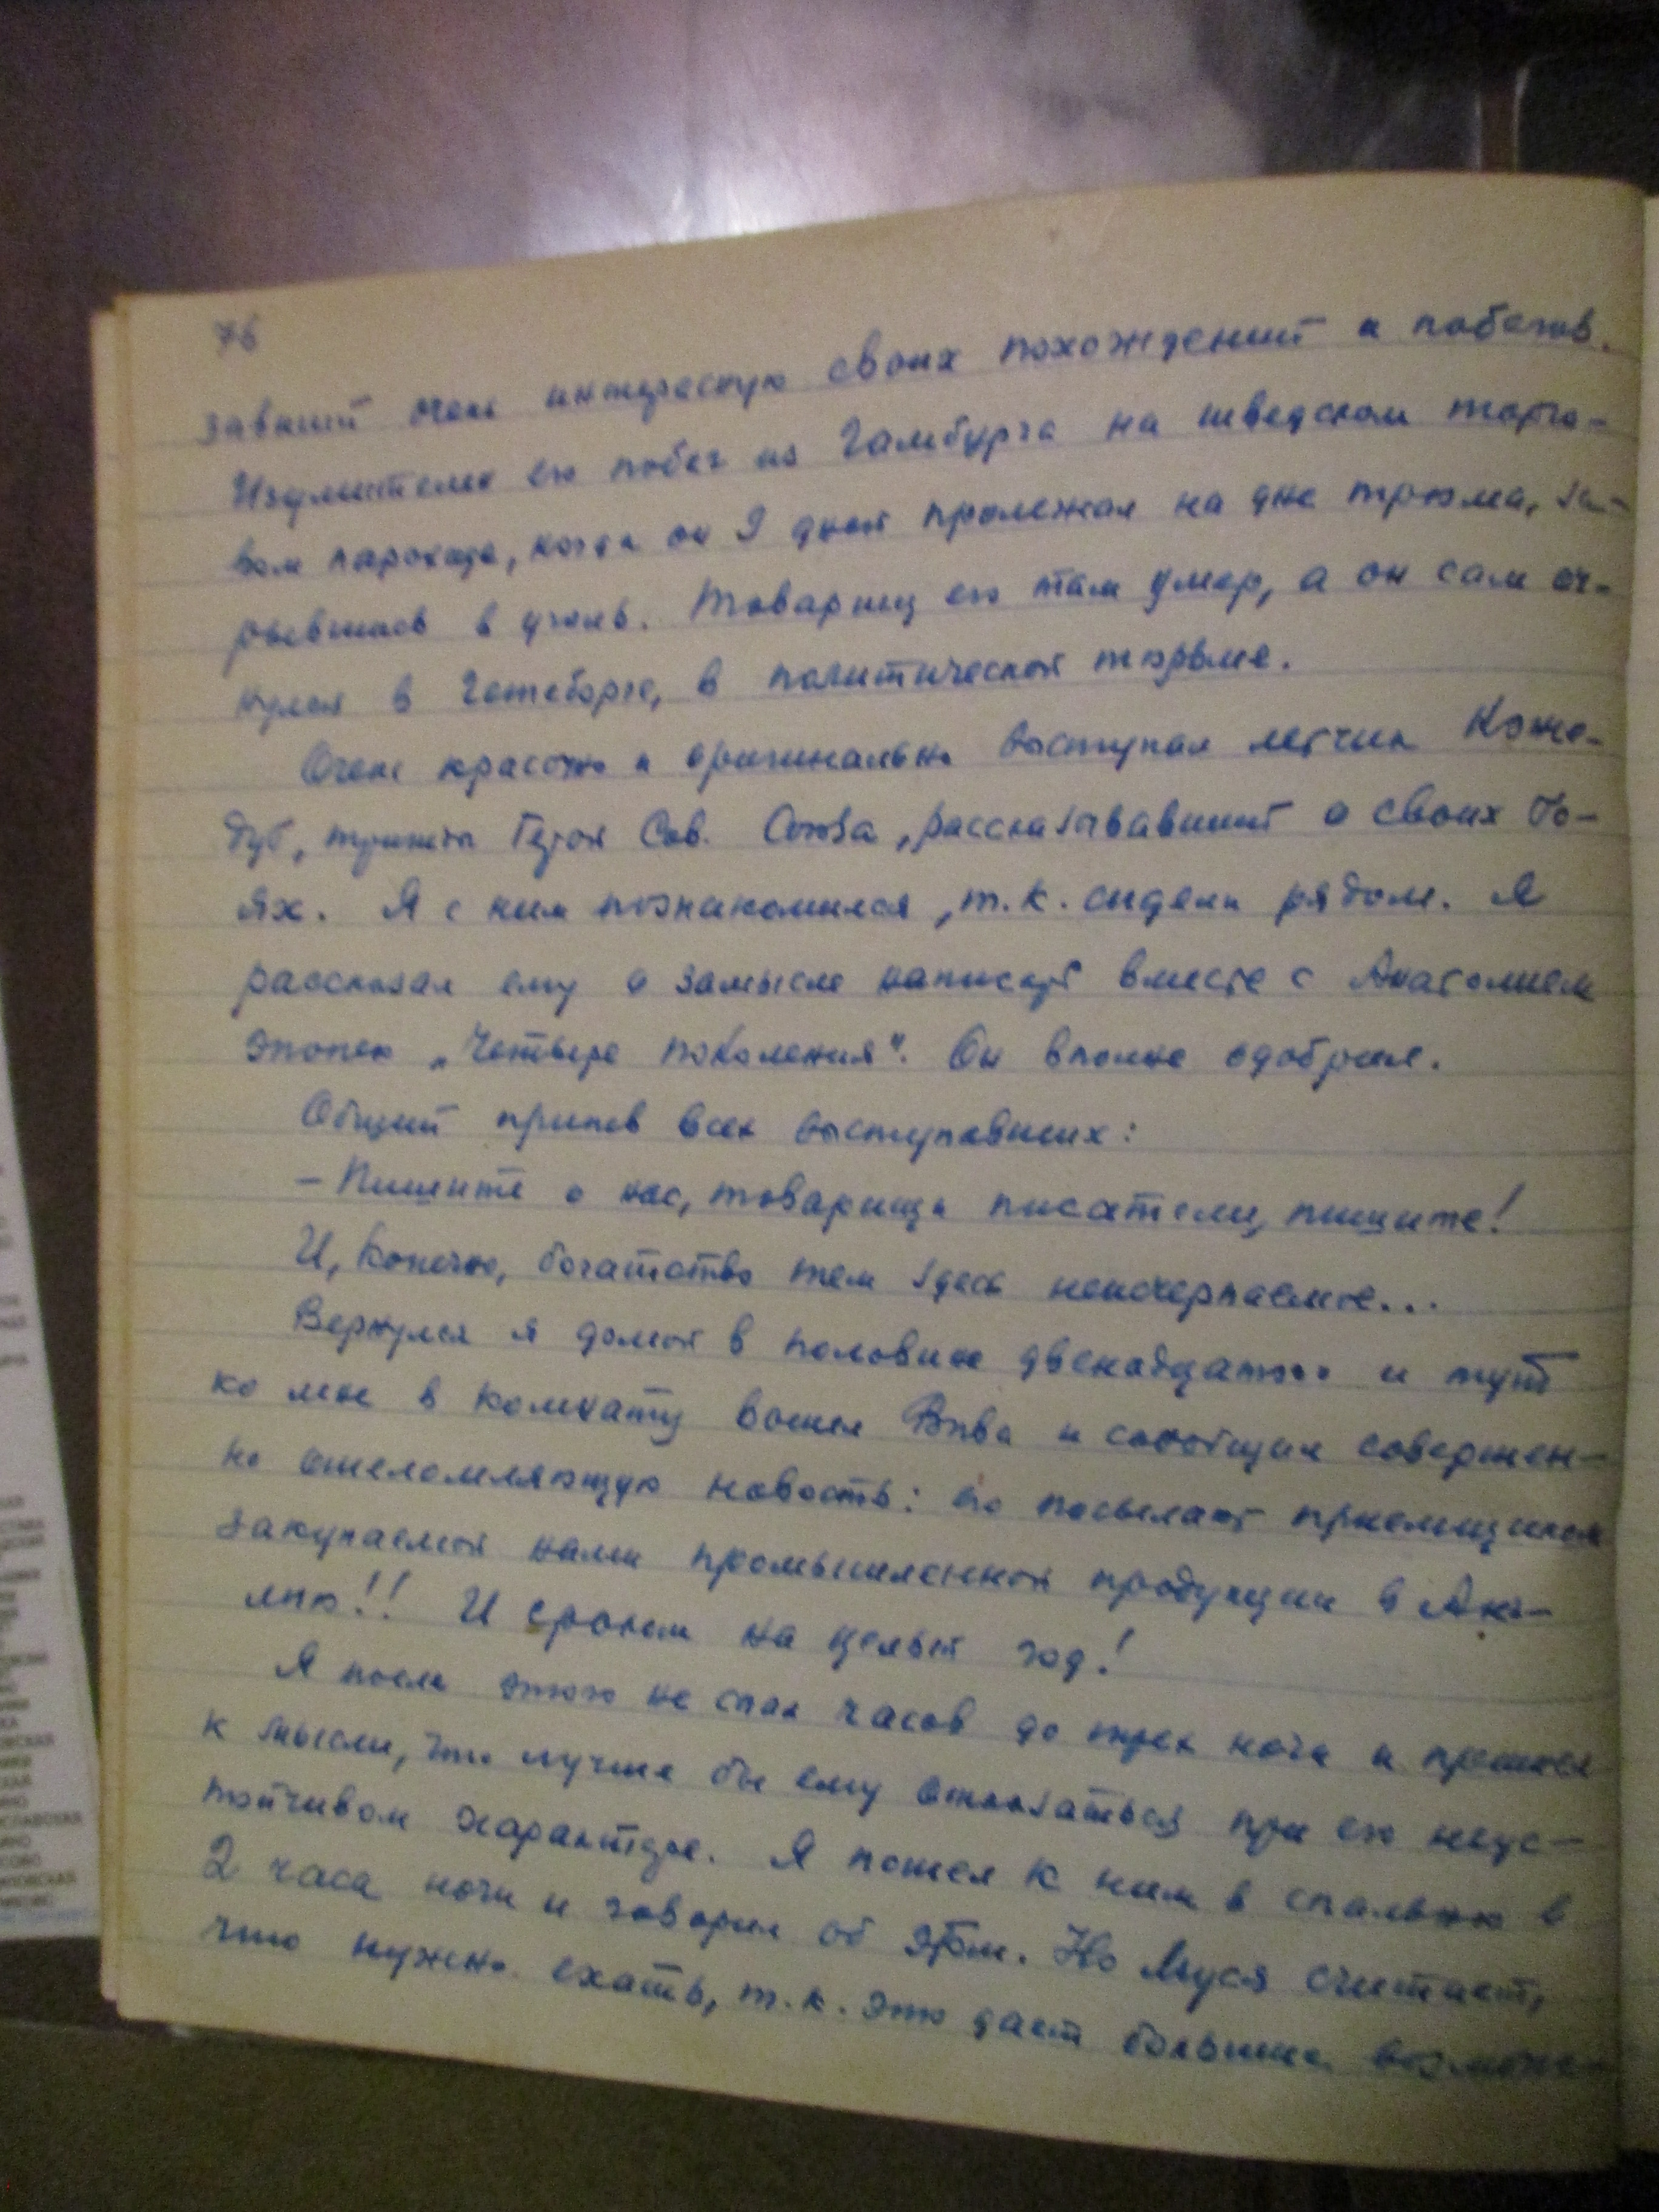 76
завший очень интересную своих похождений и побегов.
Изумителен его побег из Гамбурга на шведском торго-
вом пароходе, когда он 9 дней пролежал на дне трюма, за-
рывшись в уголь. Товарищ его там умер, а он сам оч-
нулся в Гетеборге, в политической тюрьме.
Очень красочно и оригинально выступал летчик Коже-
дуб, трижды Герой Сов. Союза, рассказывавший о своих бо-
ях. Я с ним познакомился, т.к. сидели рядом. Я
рассказал ему о замысле написать вместе с Анатолием
эпопею „Четыре поколения". Он вполне одобрил.
Общий припев всех выступавших:
– Пишите о нас, товарищи писатели, пишите!
И, конечно, богатство тем здесь неисчерпаемое...
Вернулся я домой в половине двенадцатого и тут
ко мне в комнату вошел Вива и сообщил совершен-
но ошеломляющую новость: его посылают приемщиком
закупаемой нами промышленной продукции в Анг-
лию!! И сроком на целый год!
Я после этого не спал часов до трех ночи и пришел
к мысли, что лучше бы ему отказаться при его неус-
тойчивом характере. Я пошел к ним в спальню в
2 часа ночи и говорил об этом. Но Муся считает,
что нужно ехать, т.к. это дает большие возможн-